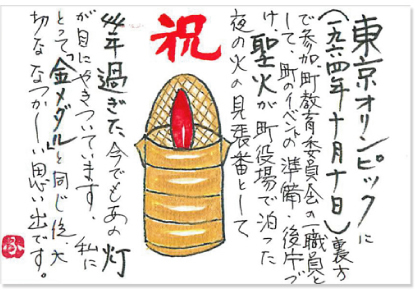 東京オリンピックに
(一九六四年十月十日)裏方
で参加、町教育委員会の一職員と
して、町のイベントの準備・後片づ
け、聖火が町役場で泊った
夜の火の見張番として、
祝
44年過ぎた、今でもあの灯
が目にやきついています。私に
とって、「金メダル」と同じ位、大
切ななつかしい思い出です。
ふ